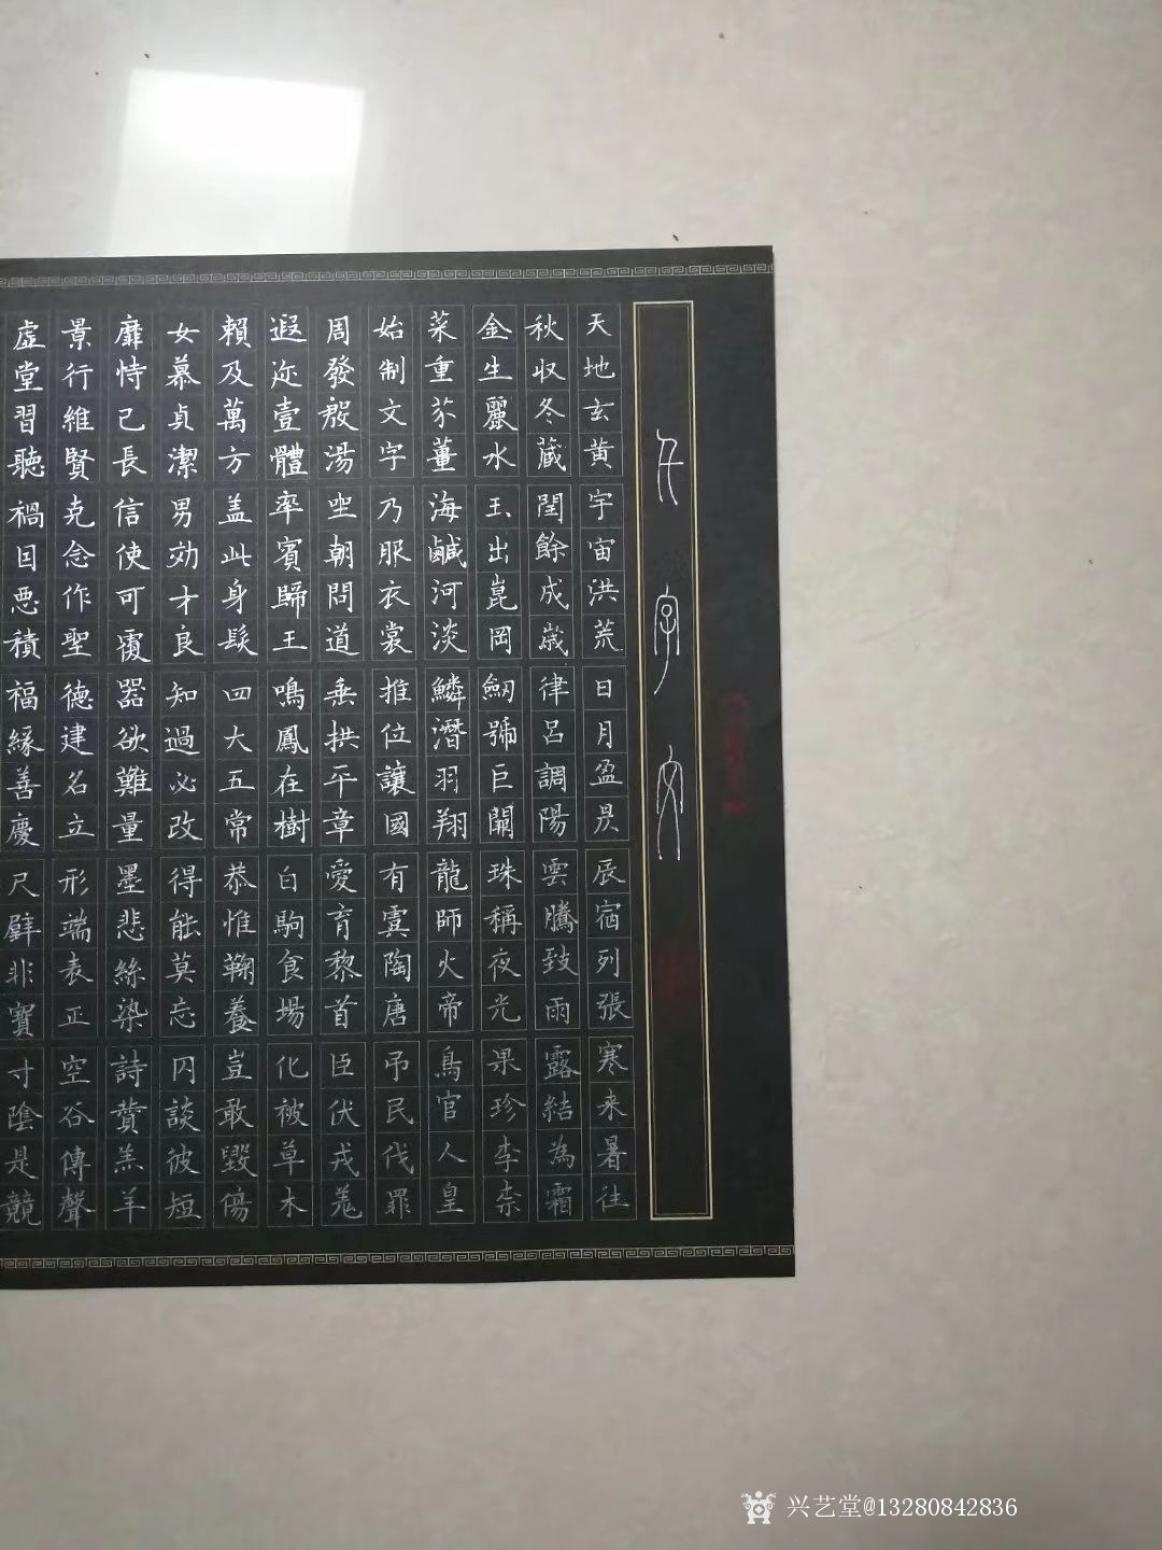 千字文
天地玄黄宇宙洪荒日月盈昃辰宿列張寒来暑往
秋収冬蔵閏餘成歳律呂調陽雲騰致雨露結為霜
金生麗水玉出崑岡劒號巨闕珠稱夜光果珍李柰
菜重芥薑海鹹河淡鱗潛羽翔龍師火帝鳥官人皇
始制文字乃服衣裳推位讓國有虞陶唐弔民伐罪
周發殷湯坐朝問道垂拱平章愛育黎首臣伏戎羌
遐迩壹體率賓歸王鳴鳳在樹白駒食場化被草木
賴及萬方盖此身髮四大五常恭惟鞠養豈敢毀傷
女慕貞潔男効才良知過必改得能莫忘罔談彼短
靡恃己長信使可覆器欲難量墨悲絲染詩賛羔羊
景行維賢克念作聖德建名立形端表正空谷傳聲
虚堂習聴禍因悪積福緣善慶尺璧非寶寸陰是競
兴艺堂@13280842836